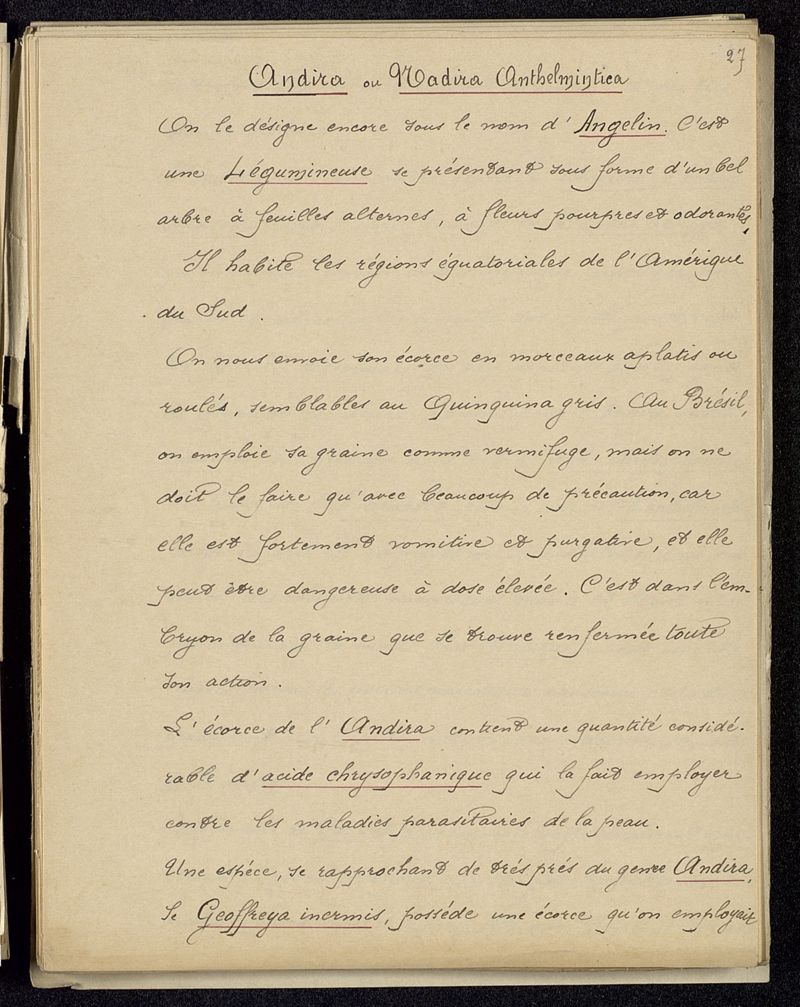 27
Andira ou Nadira Anthelmintica
On le désigne encore sous le nom d' Angelin. C'est
une Légumineuse se présentant sous forme d'un bel
arbre à feuilles alternes, à fleurs pourpres et odorantes.
Il habite les régions équatoriales de l'Amérique
du Sud.
On nous envoie son écorce en morceaux aplatis ou
roulés, semblables au Quinquina gris. Au Brésil,
on emploie sa graine comme vermifuge, mais on ne
doit le faire qu'avec beaucoup de précaution, car
elle est fortement vomitive et purgative, et elle
peut être dangereuse à dose élevée. C'est dans l'em-
bryon de la graine que se trouve renfermée toute
son action.
L'écorce de l'Andira contient une quantité considé-
rable d'acide chrysophanique qui la fait employer
contre les maladies parasitaires de la peau.
Une espéce, se rapprochant de trés prés du genre Andira,
le Geoffreya inermis, posséde une écorce qu'on employait